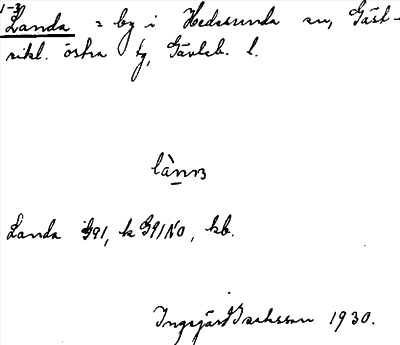 1-3
Landa = by i Hedesunda sn, Gäst-
rikl. östra tg, Gävleb. l.
Landa G91, k G91NO, kb.
Ingegärd Isaksson 1930.